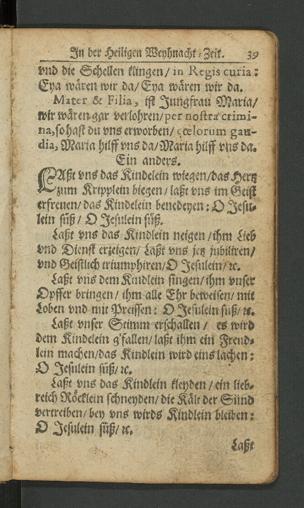 In der Heiligen Weyhnacht-Zeit. 39
vnd die Schellen klingen/ in Regis curia:
Eya wären wir da/ Eya wären wir da.
Mater & Filia, ist Jungfrau Maria/
wir wären gar verlohren/ per nostra crimi-
na, so hast du vns erworben/ cœlorum gau-
dia, Maria hilff vns da/ Maria hilff vns da.
Ein anders.
LAßt vns das Kindelein wiegen/ das Hertz
zum Kripplein biegen/ laßt vns im Geist
erfreuen/ das Kindlein benedeyen: O Jesu-
lein süß/ O Jesulein süß.
Laßt vns das Kindlein neigen/ ihm Lieb
vnd Dienst erzeigen/ Laßt vns jetz jubiliren/
vnd Geistlich triumphiren/ O Jesulein/ ꝛc.
Laßt vns dem Kindlein singen/ ihm vnser
Opffer bringen/ ihm alle Ehr beweisen/ mit
Loben vnd mit Preissen: O Jesulein süß/ ꝛc.
Laßt vnser Stimm erschallen/ es wird
dem Kindelein g'fallen/ laßt ihm ein Freud-
lein machen/ das Kindlein wird eins lachen:
O Jesulein süß/ ꝛc.
Laßt vns das Kindlein kleyden/ ein lieb-
reich Röcklein schneyden/ die Kält der Sünd
vertreiben/ bey vns wirds Kindlein bleiben:
O Jesulein süß/ ꝛc.
Laßt